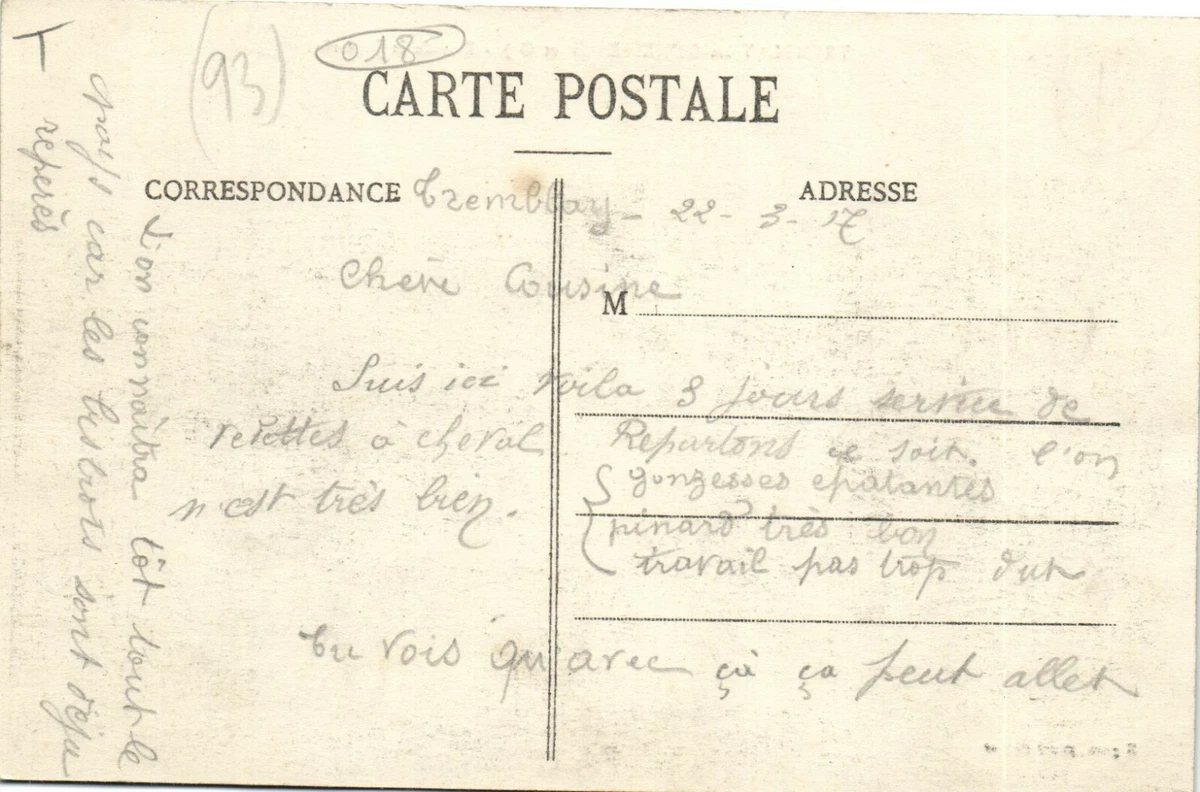 (93)
018
CARTE POSTALE
CORRESPONDANCE
ADRESSE
Tremblay - 22 - 3 - 17
Chère Cousine
M
Suis ici voila 3 jours service de
à cheval Repartons ce soir. l'on
n'est très bien.
gonzesses epatantes
pinard très bon
travail pas trop dur
tu vois qu'avec çà ça peut aller
L'on connaitra tôt tout le
pays car les bistrots sont déja
reperès